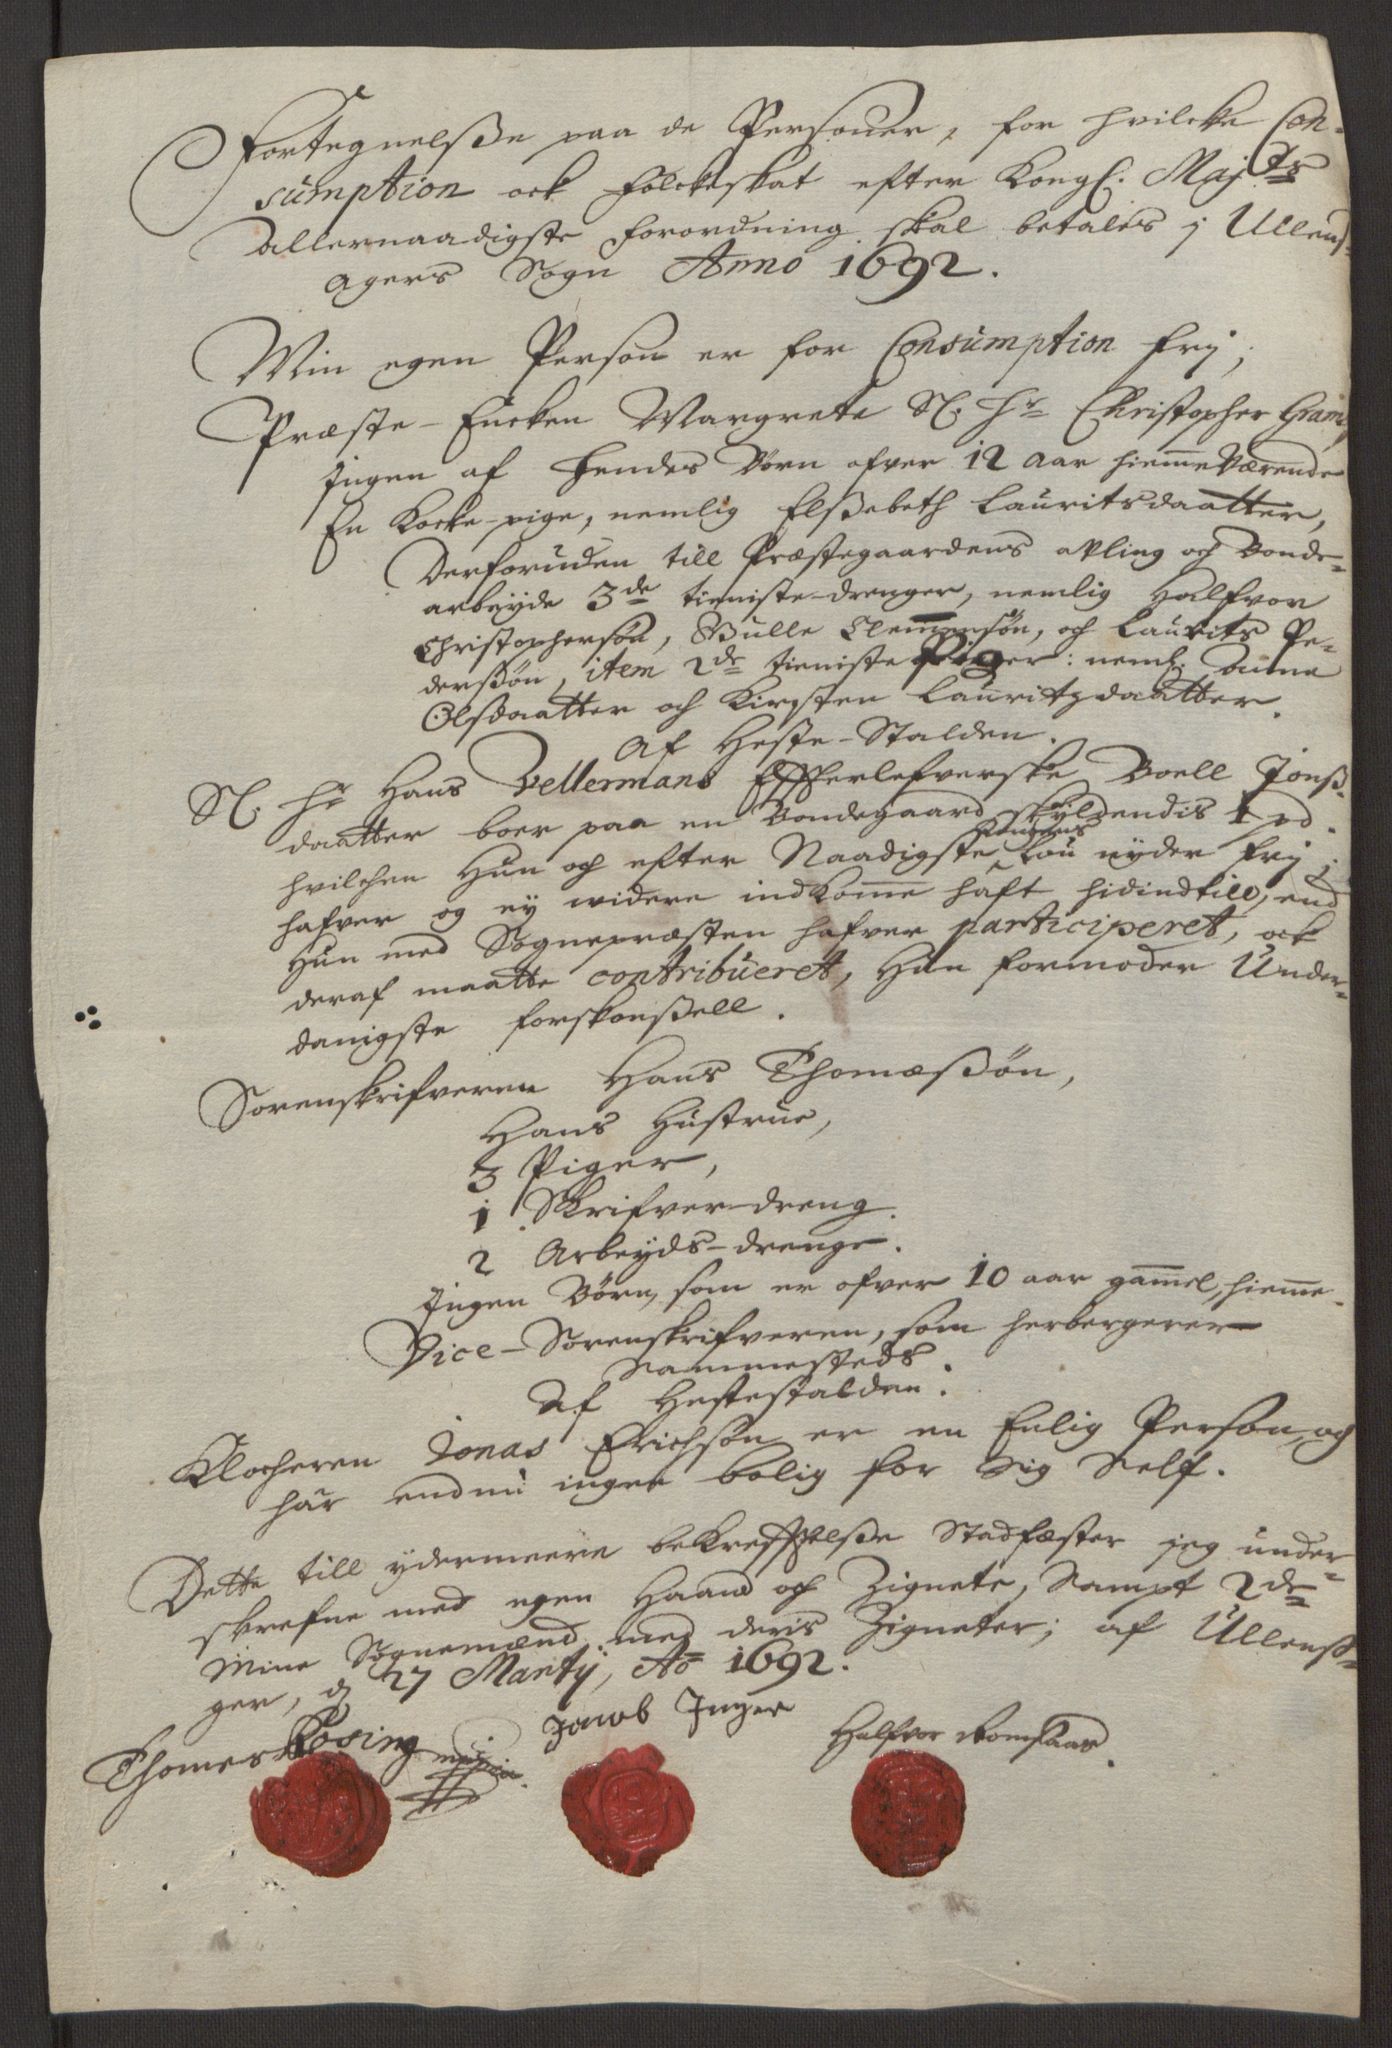 Fortegnelsße paa de Personer, for hvilcke Con-
sumption ock Folckeskat efter Kongl. Maj:ts
allernaadigste Forordning skal betales j Ullens-
agers Sogn Anno 1692.
Min egen Person er for Consumption frij,
Præste-Encken Margrete Sl. Hr Christopher Grams,
Ingen af hendes Børn ofver 12 aar hiemme værende
En Kocke-pige, nemlig Elßebeth Lauritsdaatter,
Derforuden till Præstegaardens aVling och Bonde-
arbeyde 3de tieniste-drenger, nemlig Halfvor
Christophersøn, Gulle Clemmensøn, och Laurits Pe-
derßøn, item 2de tieniste Piger: neml. Anne
Olsdaatter och Kirsten Lauritzdaatter.
Af Heste-Stalden.
Sl. Hr Hans Vellermans Effterlefverske Boell Jonß-
daatter boer paa en Bondegaard skyldendis 1 pd.
hvilchen Hun och efter Naadigste Kongens Lou nyder frij;
hafver og ey widere indkomme haft hidindtill, end
Hun med Sognepræsten hafver participeret, ock
deraf maatte contribueret, Hun formoder Under-
danigste forskonßell.
Sorenskrifveren Hans Thomæßøn,
Hans Hustrue,
3 Piger,
1 Skrifver-dreng.
2 Arbeyds-drenge.
Ingen Børn, som er ofver 10 aar gammel, hiemme.
Vice-Sorenskrifveren, som herbergerer
Sammesteds.
Af Hestestalden.
Klocheren Jonas Erichsøn er en Enlig Person, og
har endnu ingen bolig for Sig Self.
Dette till ydermeere bekreffttelsße Stadfæster jeg under-
skrefne med egen Haand och Zignete, Sampt 2de
Mine Sognemænd med deris Zigneter; af Ullensa-
ger, d. 27 Martij, Ao 1692.
Thomes Rosing mppria. Jacob Inger Halfvor Romsaas.